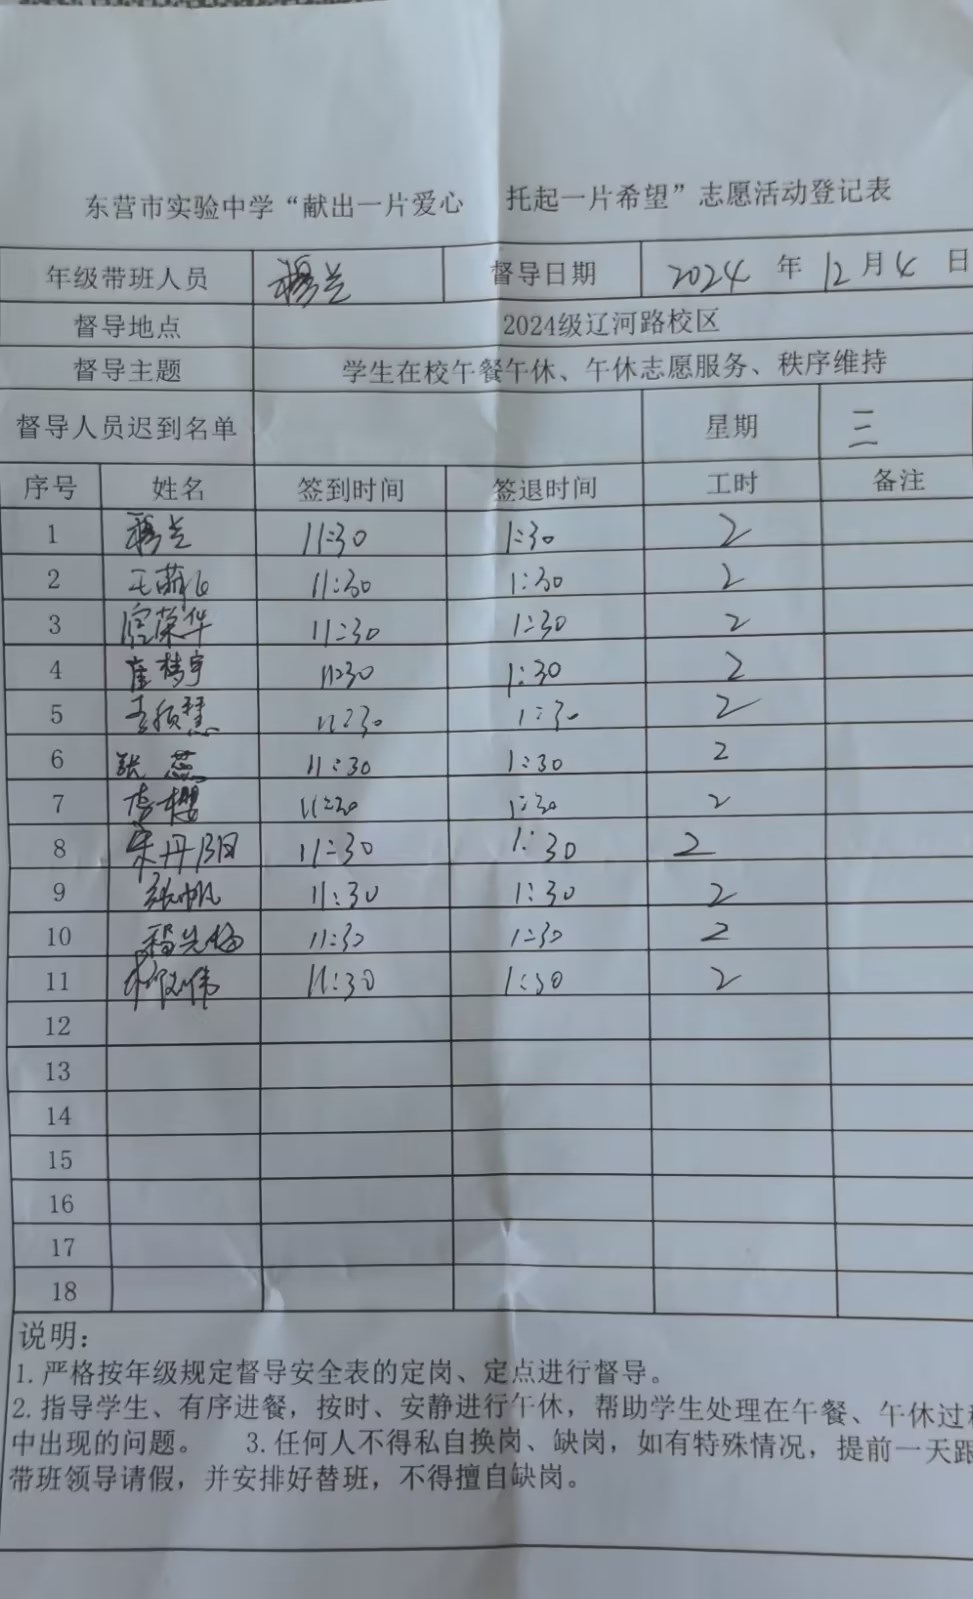 东营市实验中学“献出一片爱心 托起一片希望”志愿活动登记表
年级带班人员 穆兰 督导日期 2024 年 12 月 4 日
督导地点 2024级辽河路校区
督导主题 学生在校午餐午休、午休志愿服务、秩序维持
督导人员迟到名单 星期 三
序号 姓名 签到时间 签退时间 工时 备注
1 穆兰 11:30 1:30 2
2 11:30 1:30 2
3 荣华 11:30 1:30 2
4 崔梦宇 11:30 1:30 2
5 11:30 1:30 2
6 张蕊 11:30 1:30 2
7 李樱 11:30 1:30 2
8 宋丹阳 11:30 1:30 2
9 张帆 11:30 1:30 2
10 11:30 1:30 2
11 11:30 1:30 2
12
13
14
15
16
17
18
说明：
1.严格按年级规定督导安全表的定岗、定点进行督导。
2.指导学生、有序进餐，按时、安静进行午休，帮助学生处理在午餐、午休过
中出现的问题。 3.任何人不得私自换岗、缺岗，如有特殊情况，提前一天跟
带班领导请假，并安排好替班，不得擅自缺岗。